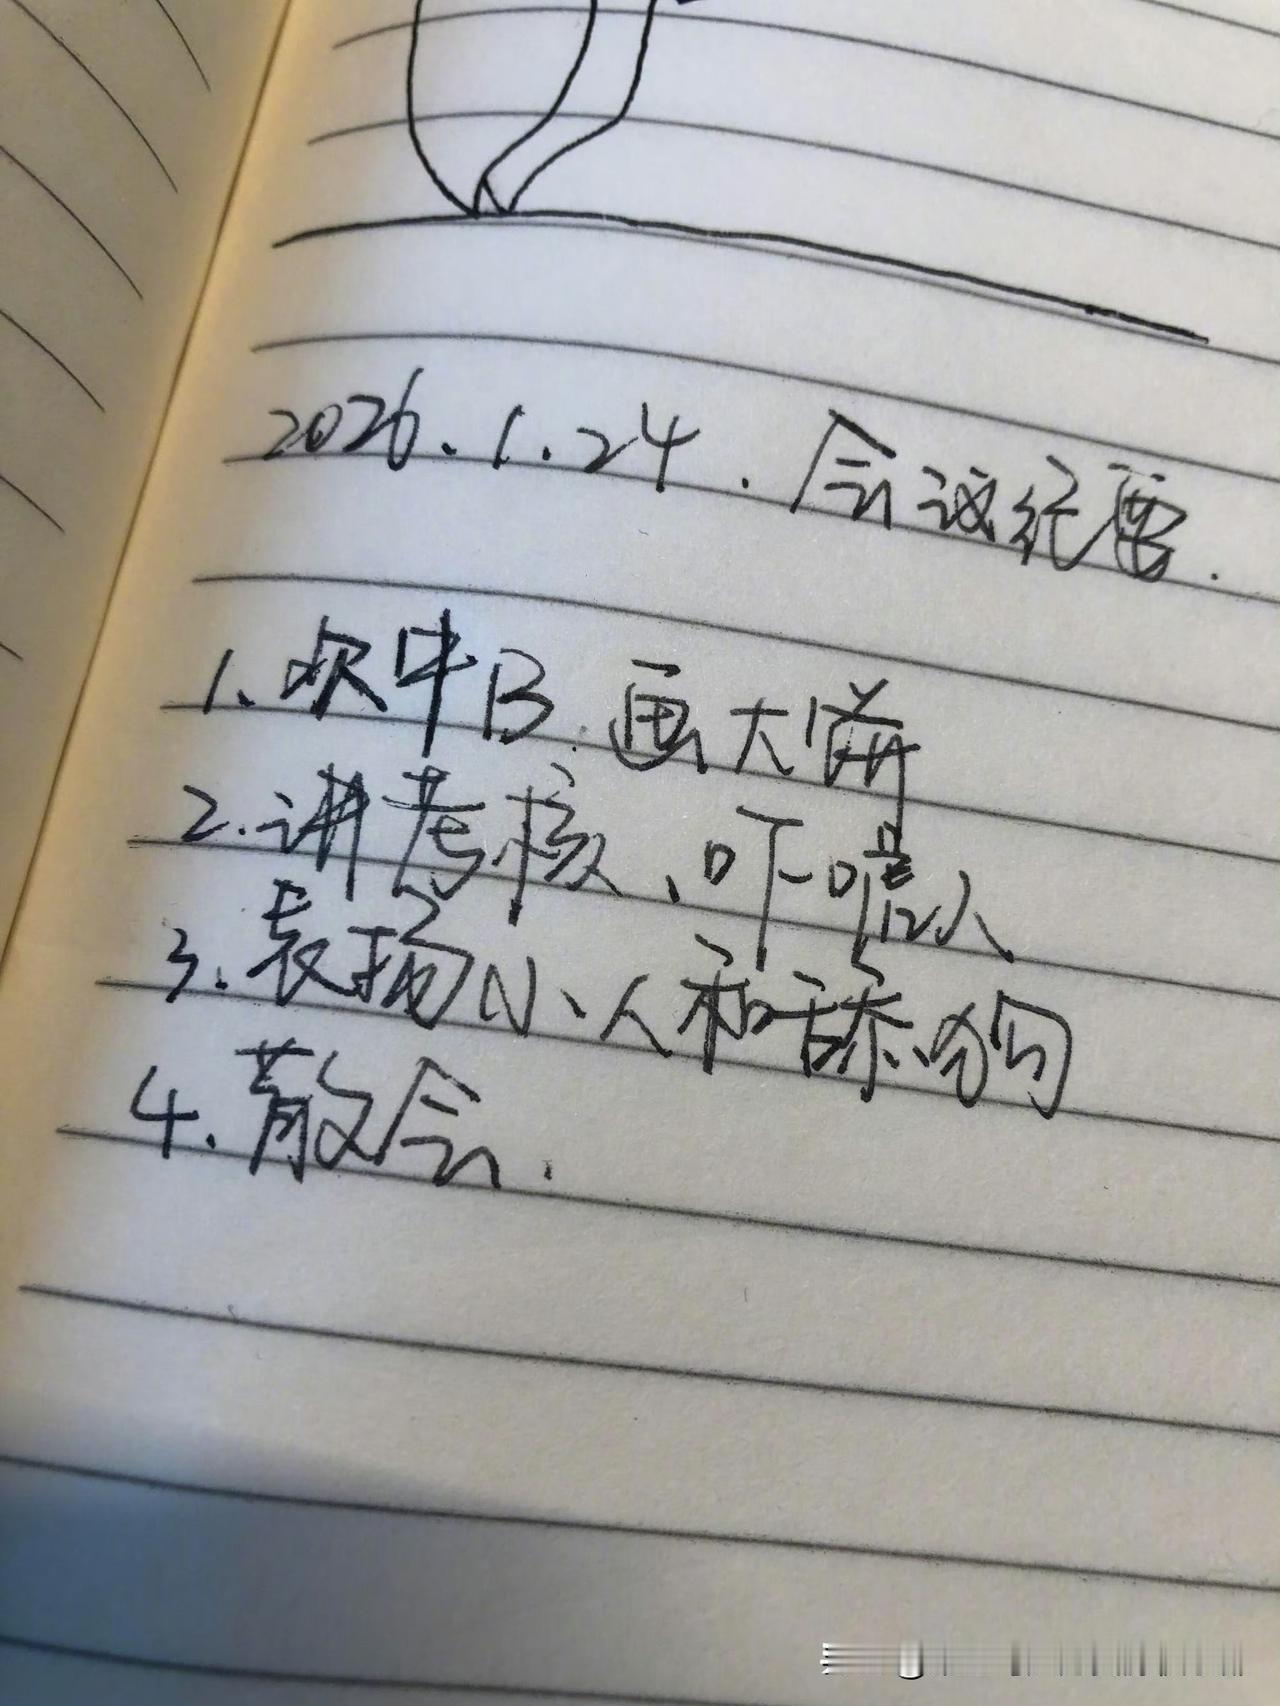 2026.1.24.会议纪要.
1、吹牛B.画大饼
2.讲考核、吓唬人
3.表扬小人和舔狗
4.散会.